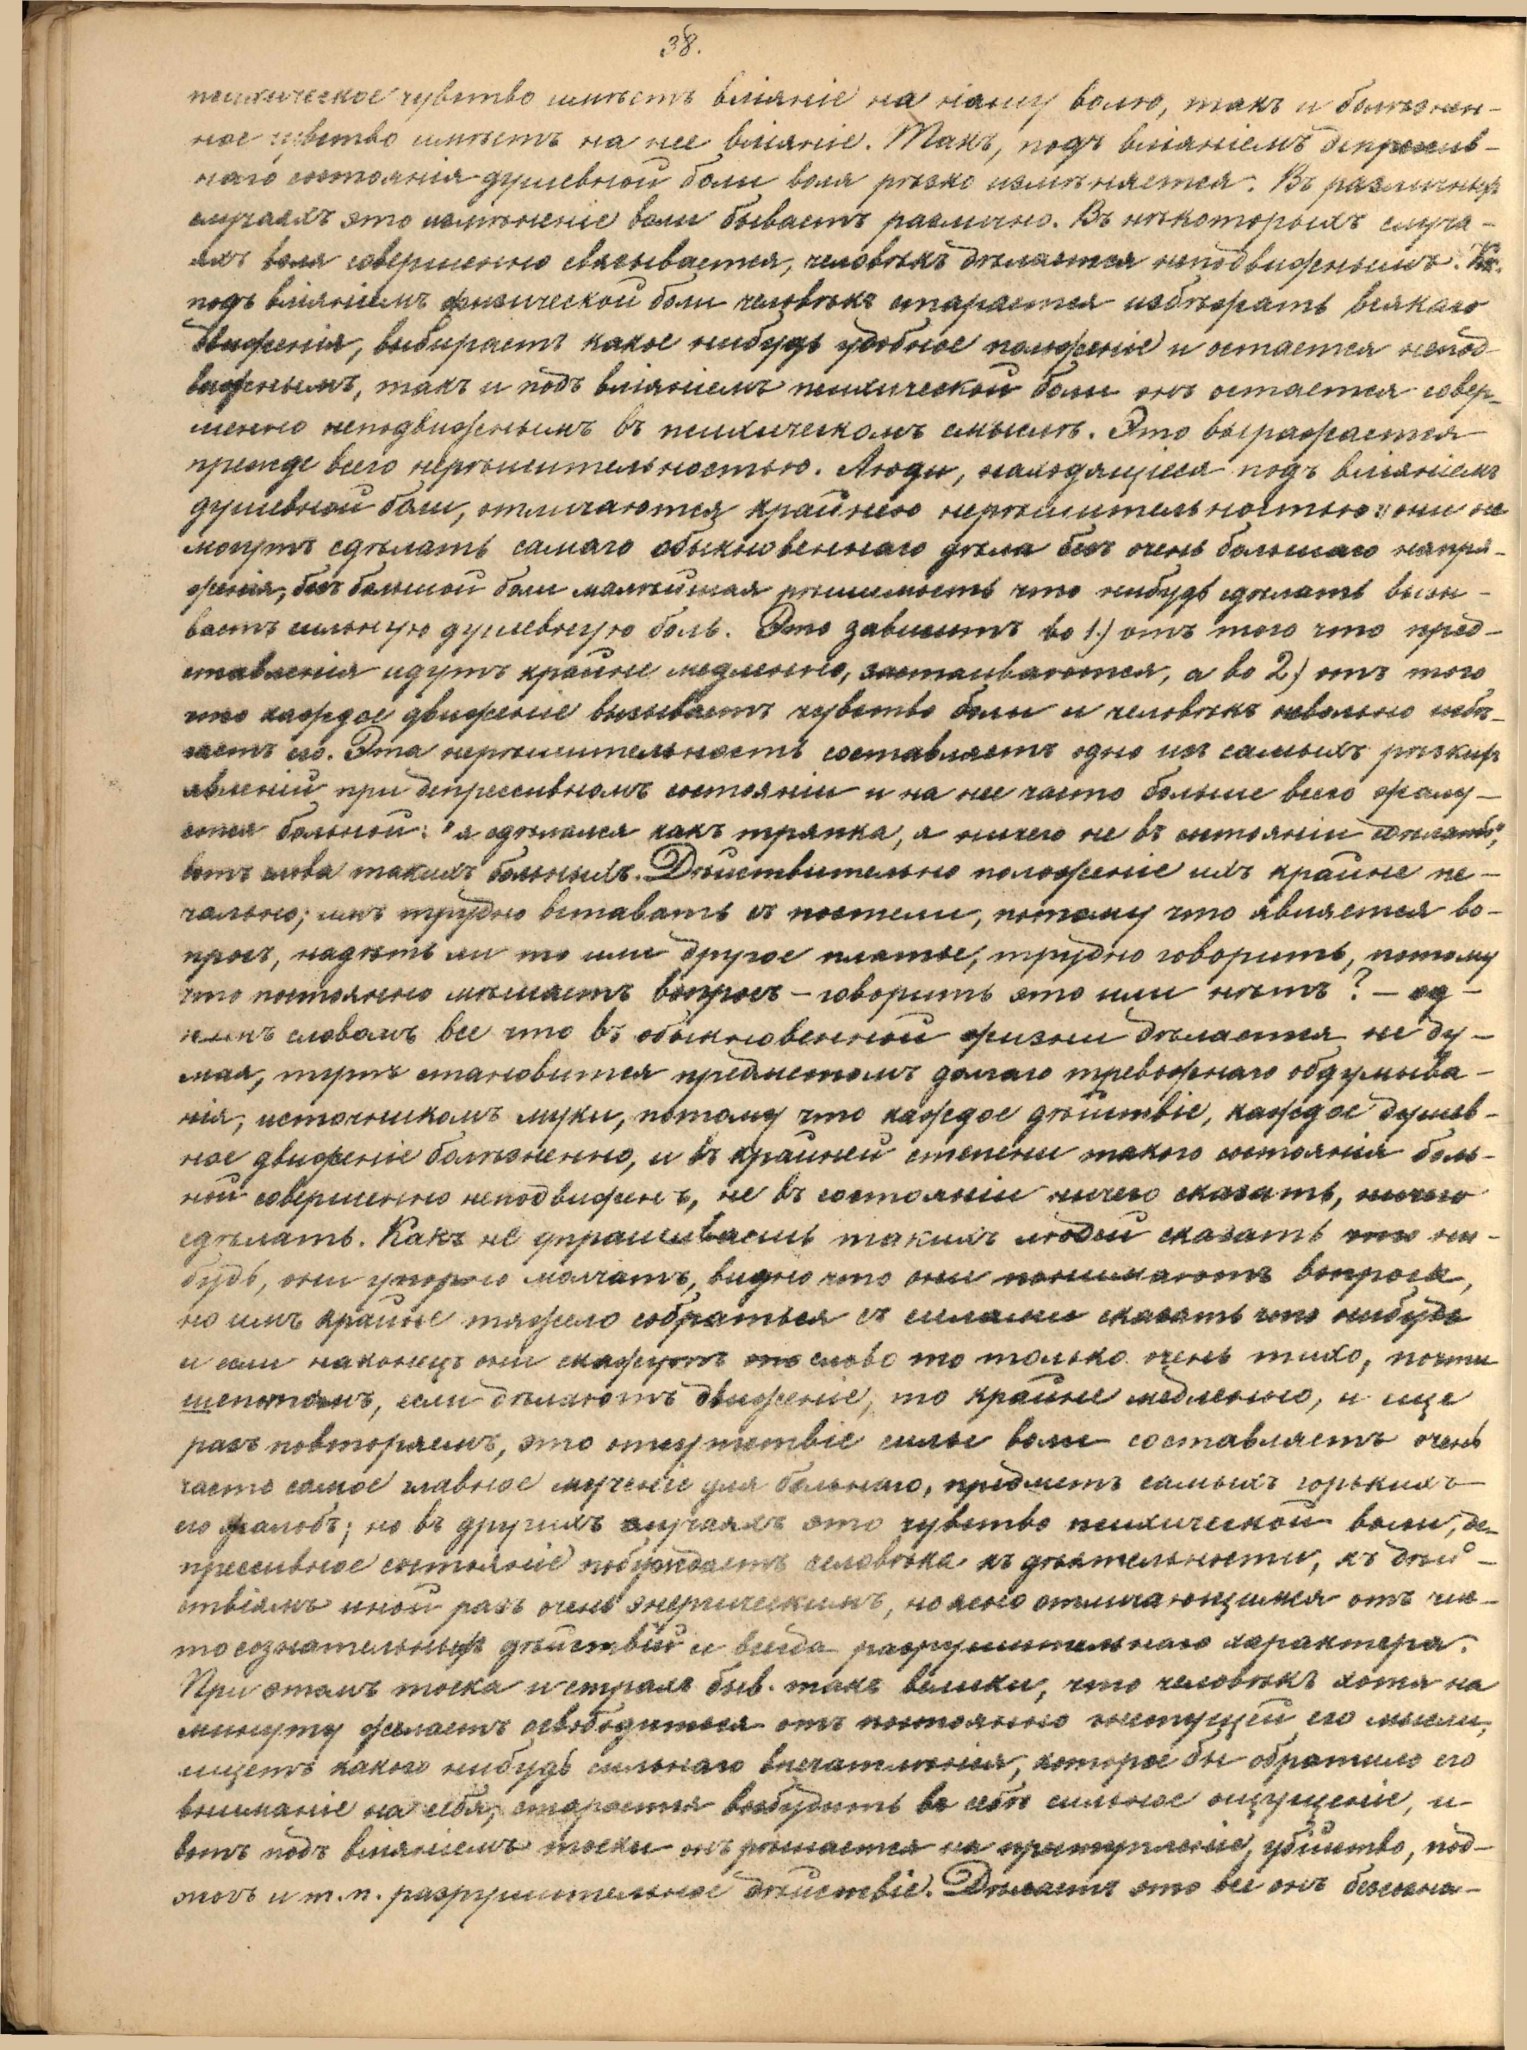 38.
психическое чувство имѣетъ вліяніе на нашу волю, такъ и болѣзнен-
ное чувство имѣетъ на нее вліяніе. Такъ, подъ вліяніемъ депрессив-
наго состоянія душевной боли воля рѣзко измѣняется. Въ различныхъ
случаяхъ это измѣненіе воли бываетъ различно. Въ нѣкоторыхъ случа-
яхъ воля совершенно связывается, человѣкъ дѣлается неподвижнымъ.
подъ вліяніемъ физической боли человѣкъ старается избѣжать всякаго
движенія, выбираетъ какое нибудь удобное положеніе и остается непод-
вижнымъ, такъ и подъ вліяніемъ психической боли онъ остается совер-
шенно неподвижнымъ въ психическомъ смыслѣ. Это выражается
прежде всего нерѣшительностью. Люди, находящіеся подъ вліяніемъ
душевной боли, отличаются крайнею нерѣшительностью: они не
могутъ сдѣлать самаго обыкновеннаго дѣла безъ очень большаго напря-
женія, безъ большой боли малѣйшая рѣшимость что нибудь сдѣлать вызы-
ваетъ сильную душевную боль. Это зависитъ во 1.) отъ того что пред-
ставленія идутъ крайне медленно, застаиваются, а во 2.) отъ того
что каждое движеніе вызываетъ чувство боли и человѣкъ невольно избѣ-
гаетъ его. Эта нерѣшительность составляетъ одно изъ самыхъ рѣзкихъ
явленій при депрессивномъ состояніи и на нее часто больше всего жалу-
ются больной: "я сдѣлался какъ тряпка, я ничего не въ состояніи сдѣлать",
вотъ слова такихъ больныхъ. Дѣйствительно положеніе ихъ крайне пе-
чально; имъ трудно вставать съ постели, потому что является во-
просъ, надѣть ли то или другое платье, трудно говорить, потому
что постоянно мѣшаетъ вопросъ – говорить это или нѣтъ? – од-
нимъ словомъ все что въ обыкновенной жизни дѣлается не ду-
мая, тутъ становится предметомъ долгаго тревожнаго обдумыва-
нія, источникомъ муки, потому что каждое дѣйствіе, каждое душев-
ное движеніе болѣзненно, и въ крайней степени такого состоянія боль-
ной совершенно неподвиженъ, не въ состояніи ничего сказать, ничего
сдѣлать. Какъ не упрашиваешь такихъ людей сказать что ни-
будь, они упорно молчатъ, видно что они понимаютъ вопросъ,
но имъ крайне тяжело собраться съ силами сказать что нибудь
и если наконецъ они скажутъ это слово то только очень тихо, почти
шепотомъ, если дѣлаютъ движеніе, то крайне медленно, и еще
разъ повторяемъ, это отсутствіе силы воли составляетъ очень
часто самое главное мученіе для больнаго, предметъ самыхъ горькихъ
его жалобъ; но въ другихъ случаяхъ это чувство психической боли, де-
прессивное состояніе побуждаетъ человѣка къ дѣятельности, къ дѣй-
ствіямъ иной разъ очень энергическимъ, но ясно отличающимся отъ чис-
то сознательныхъ дѣйствій и всегда разрушительнаго характера.
При этомъ тоска и страхъ быв. такъ велики, что человѣкъ хотя на
минуту желаетъ освободиться отъ постоянно гнетущей его мысли,
ищетъ какого нибудь сильнаго впечатлѣнія, которое бы обратило его
вниманіе на себя, старается возбудить въ себѣ сильное ощущеніе, и
вотъ подъ вліяніемъ тоски онъ рѣшается на преступленіе, убійство, под-
жогъ и т. п. разрушительное дѣйствіе. Дѣлаетъ это все онъ безсозна-